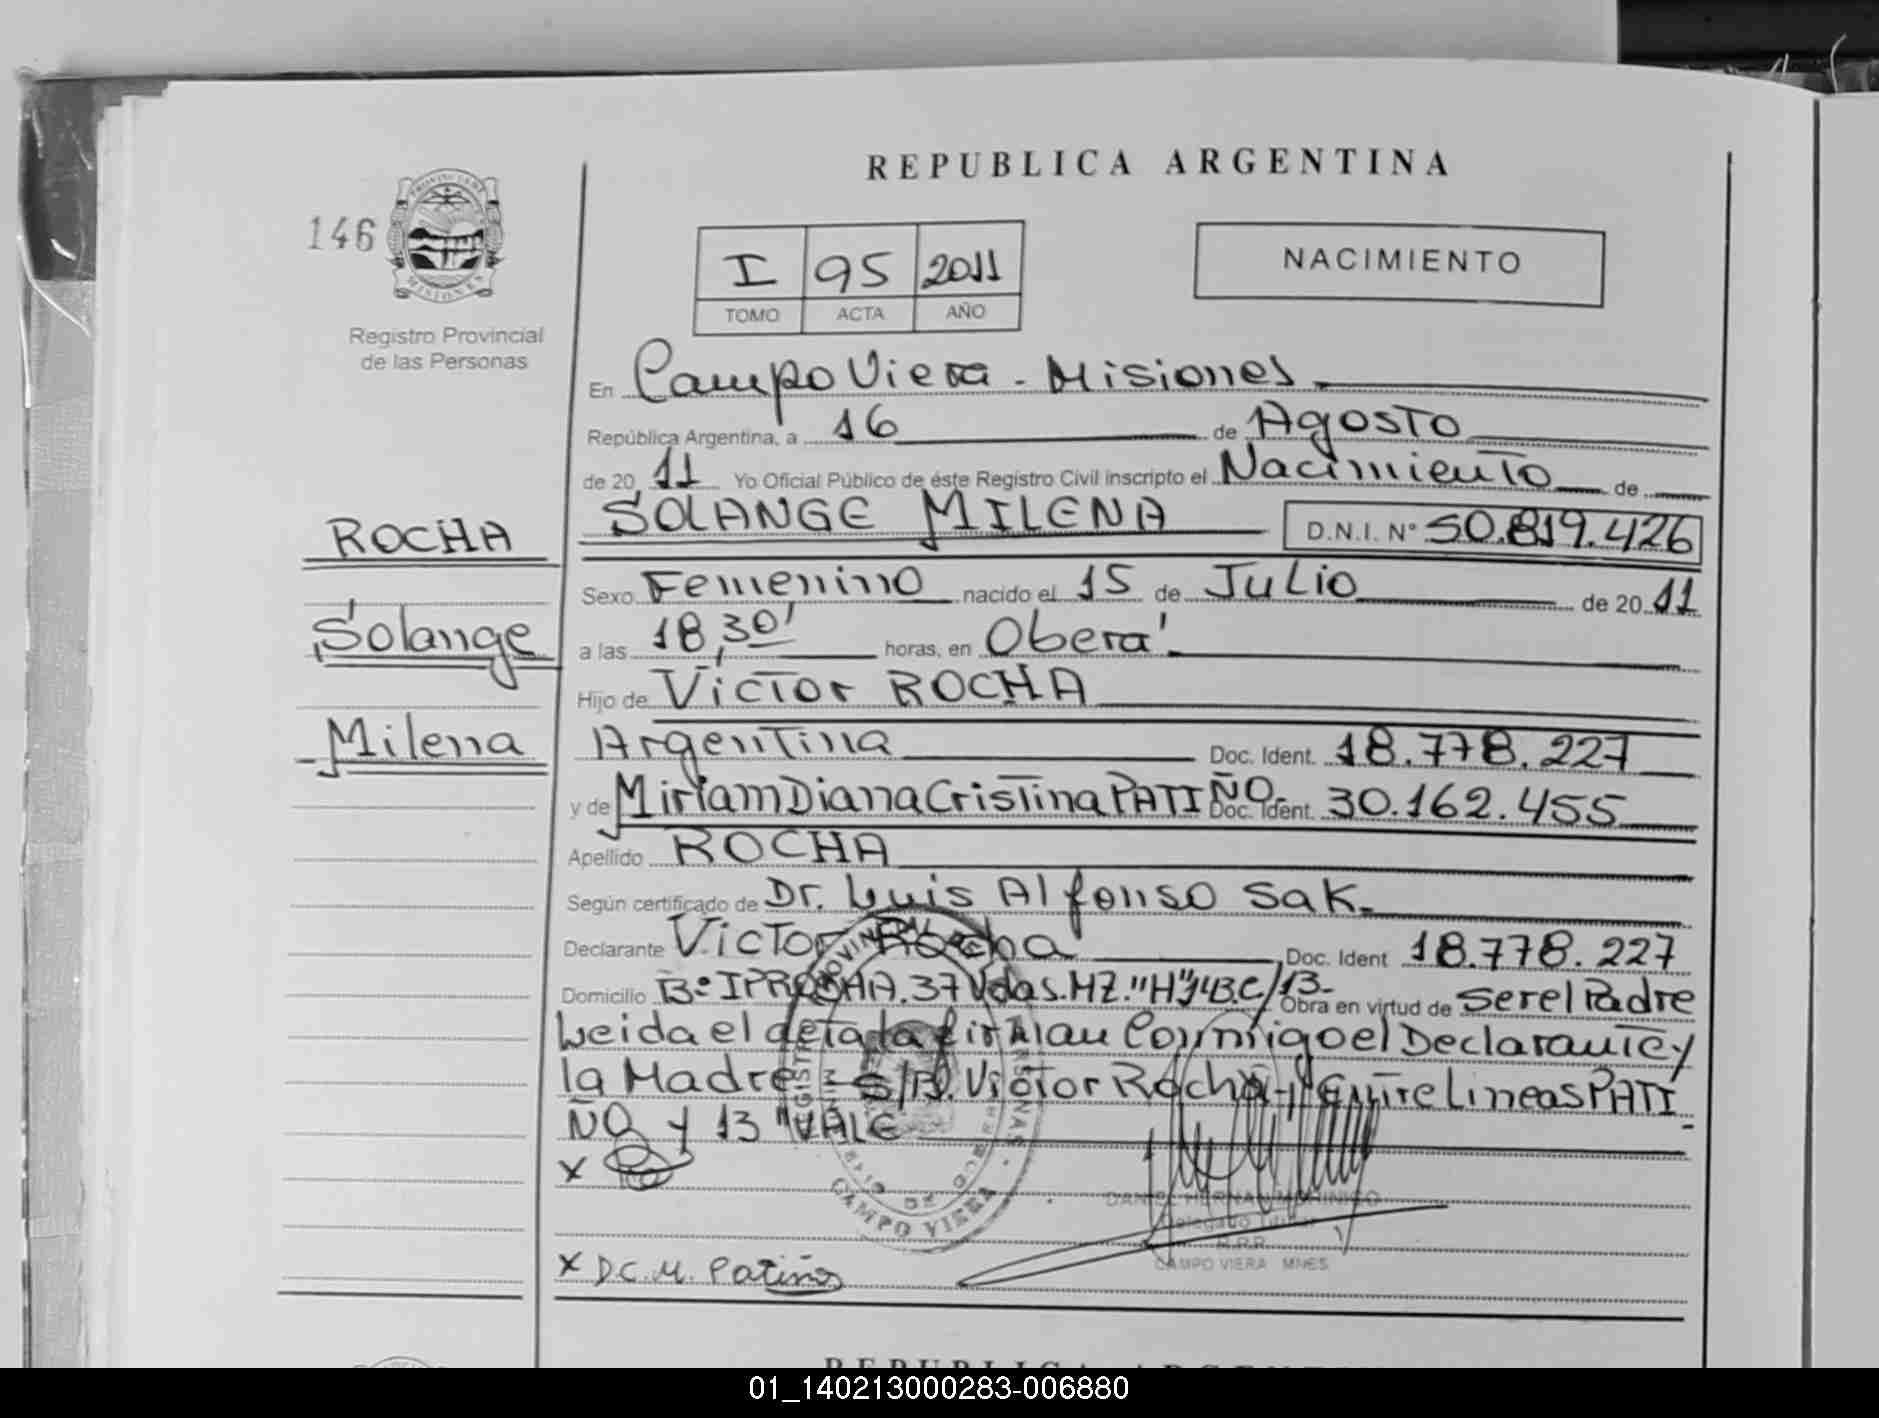 REPUBLICA ARGENTINA
146
PROVINCIA DE
MISIONES
Registro Provincial
de las Personas
I 95 2011
TOMO ACTA AÑO
NACIMIENTO
En Campo Viera - Misiones
República Argentina, a 16 de Agosto
de 20 11 Yo Oficial Público de éste Registro Civil inscripto el Nacimiento de
SOLANGE MILENA D.N.I. N° 50.819.426
ROCHA
Solange
Milena
Sexo Femenino nacido el 15 de Julio de 20 11
a las 18,30' horas, en Oberá
Hijo de Victor ROCHA
Argentina Doc. Ident. 18.778.227
y de Miriam Diana Cristina PATIÑO Doc. Ident. 30.162.455
Apellido ROCHA
Según certificado de Dr. Luis Alfonso Sak
Declarante Victor Rocha Doc. Ident 18.778.227
Domicilio B° IPRODHA. 37 Vdas. MZ. "H" C/13- Obra en virtud de Ser el Padre
Leida el acta la firman Conmigo el Declarante y
la Madre S/R. Victor Rocha y Entre Lineas PATI
ÑO y 13 "VALE
x
x D.C.M. Patiño
CAMPO VIERA
DANIEL HERNAN
Delegado Titular
CAMPO VIERA MNES
REPUBLICA ARGENTINA
01_140213000283-006880